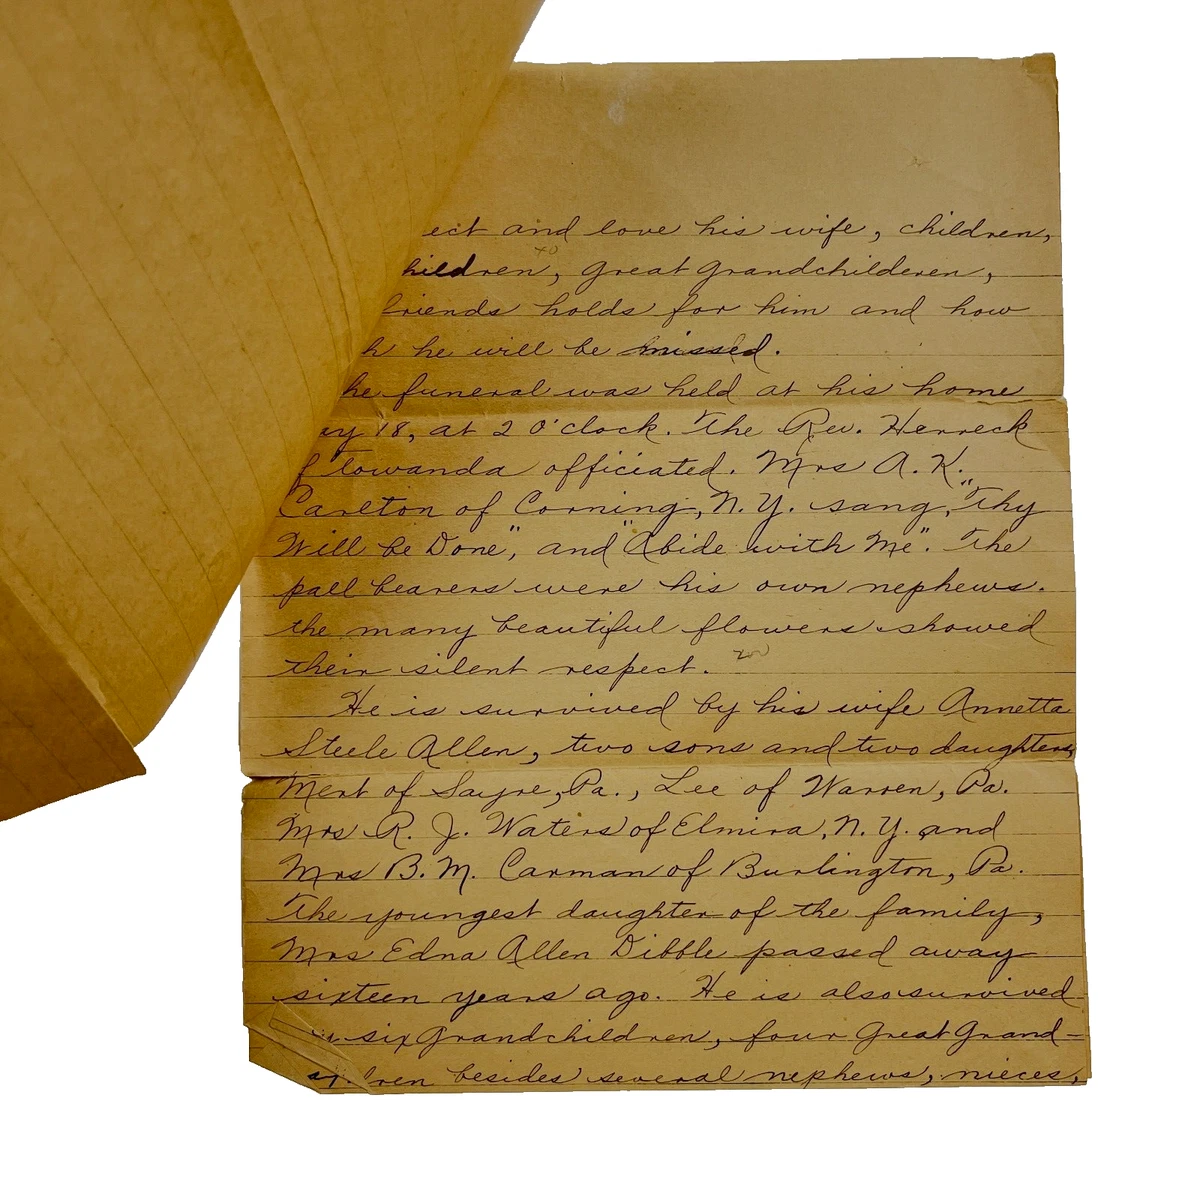 ect and love his wife, children,
hildren, great grandchilderen,
friends holds for him and how
h he will be missed.
he funeral was held at his home
ay 18, at 2 O'clock. The Rev. Herreck
f Towanda officiated. Mrs A. K.
Carlton of Corning, N. Y. sang, "Thy
Will be Done", and "Abide with Me". The
pall bearers were his own nephews.
the many beautiful flowers showed
their silent respect.
He is survived by his wife Annetta
Steele Allen, two sons and two daughters,
Mert of Sayre, Pa., Lee of Warren, Pa.
Mrs R. J. Waters of Elmira, N. Y. and
Mrs B. M. Carman of Burlington, Pa.
The youngest daughter of the family,
Mrs Edna Allen Dibble passed away
sixteen years ago. He is also survived
six Grandchildren, four Great Grand-
ren besides several nephews, nieces,